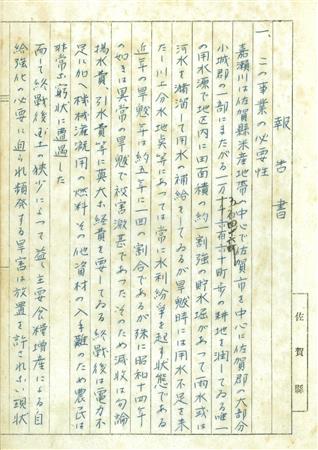 報告書
一、この事業の必要性
嘉瀬川は佐賀縣米産地帯の中心で佐賀市を中心に佐賀郡の大部分
小城郡の一部にまたがる一万 町歩の耕地を潤してゐる唯一
の用水源で地区内に田面積の約一割強の貯水堀があつて雨水或は
河水を満溜して用水の補給をしてゐるが旱魃時には用水不足を来
たし川上分水地点等にあつては常に水利紛争を起す状態である
近年の旱魃年は約五年に一回の割合であるが殊に昭和十四年
の如きは異常の旱魃で被害激甚であつたそのため減收は勿論
揚水費、引水費等に莫大な経費を要してゐる終戦後は電力不
足に加へ機械灌漑用の燃料その他資材の入手難のため農民は
非常な窮状に遭遇した
而して終戦後国土の狭少によつて益々主要食糧増産による自
給強化の必要に迫られ頻発する旱害は放置を許されない現状
佐賀縣